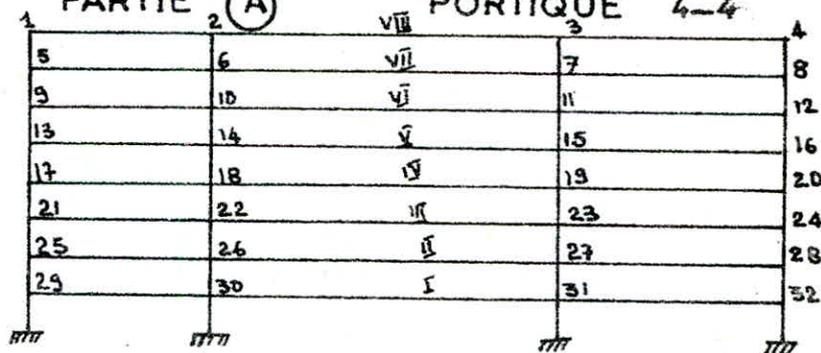 PARTIE A PORTIQUE 4-4
1 2 VIII 3 4
5 6 VII 7 8
9 10 VI 11 12
13 14 V 15 16
17 18 IV 19 20
21 22 III 23 24
25 26 II 27 28
29 30 I 31 32